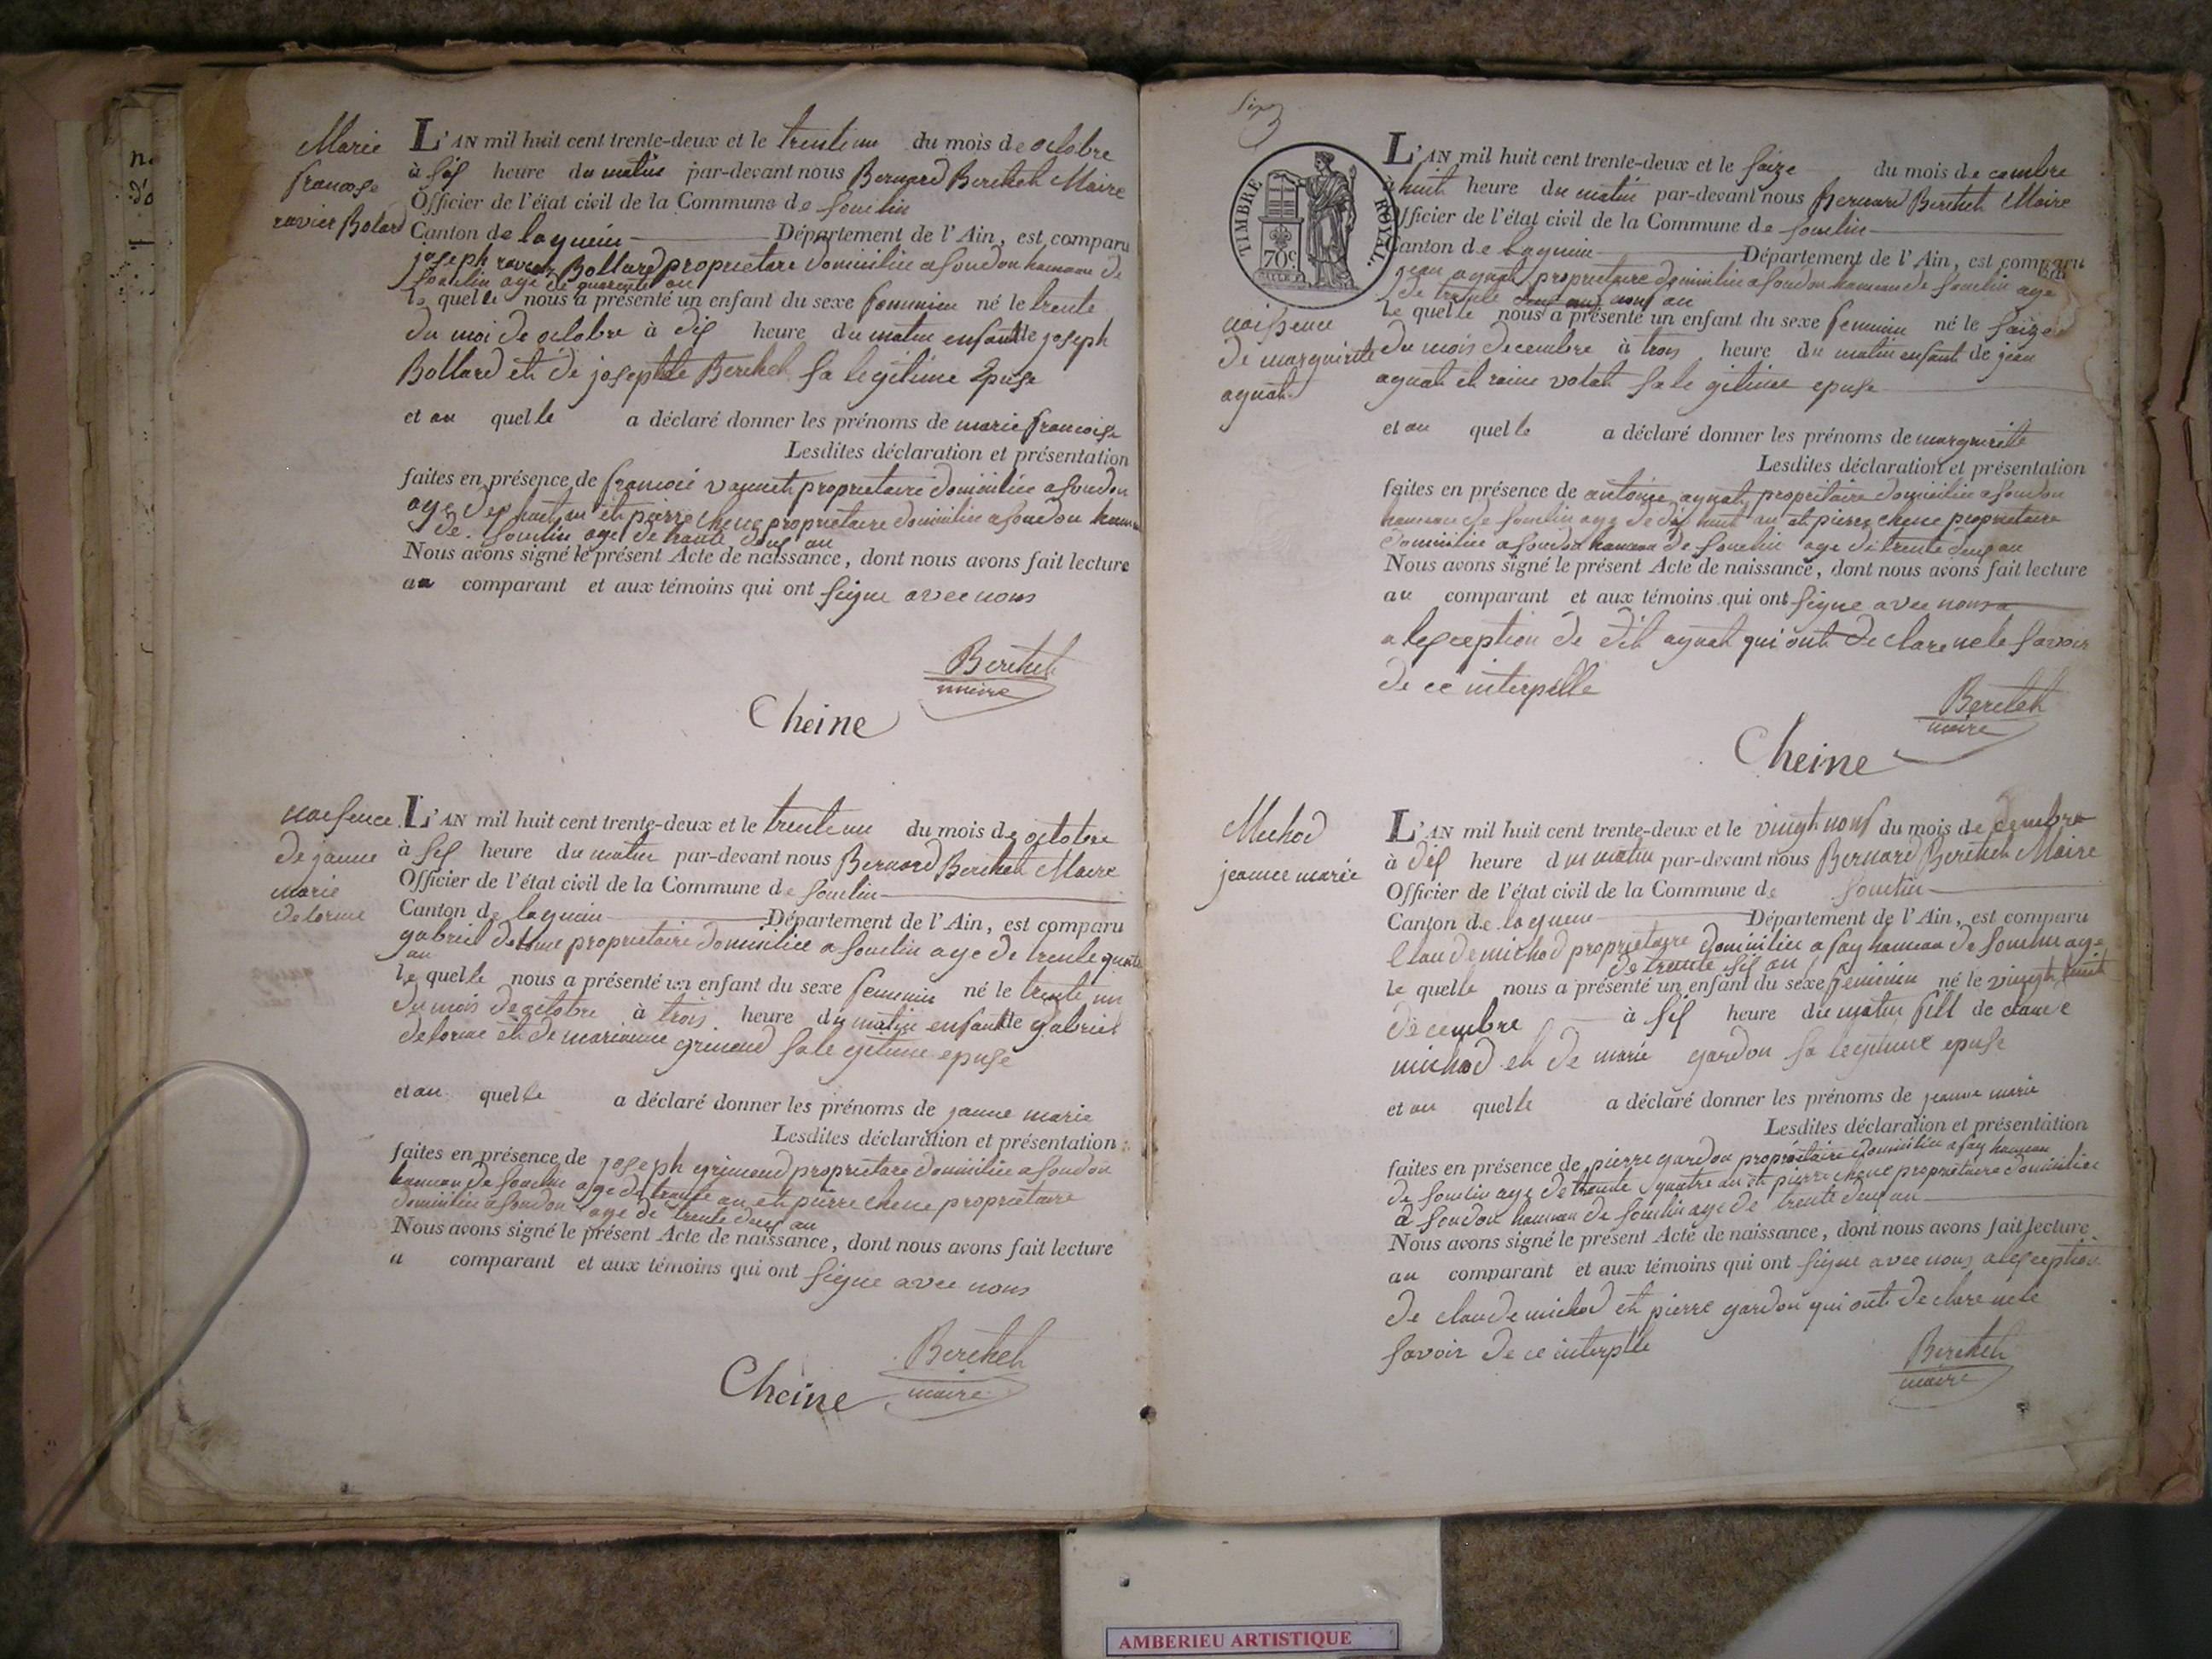 n.
d'o
Marie
francose
ravier Bolard
L'AN mil huit cent trente-deux et le trente un du mois de octobre
à sis heure du matin par-devant nous Bernard Berthet Maire
Officier de l'état civil de la Commune de souclin
Canton de lagnieu Département de l'Ain, est comparu
joseph ravier Bollard proprietare domicilie a soudon hameau de
souclin age de quarente an
le quelle nous a présenté un enfant du sexe feminien né le trente
du moi de octobre à dis heure du matin enfant de joseph
Bollard et de josephte Berthet sa legitime Epuse
et au quelle a déclaré donner les prénoms de marie francoise
Lesdites déclaration et présentation
faites en présence de francois vannet proprietaire domicilie a soudon
age huit an et pierre chene proprietaire domicilie a soudon hameau
de souclin age de trante deus an
Nous avons signé le présent Acte de naissance, dont nous avons fait lecture
au comparant et aux témoins qui ont signe avec nous
Berthet
maire
Cheine
naissence
de janne
marie
delorme
L'AN mil huit cent trente-deux et le trente un du mois de octobre
à sis heure du matin par-devant nous Bernard Berthet Maire
Officier de l'état civil de la Commune de souclin
Canton de lagnieu Département de l'Ain, est comparu
gabriel delorme proprietaire domicilie a souclin age de trente quatre
an
le quelle nous a présenté un enfant du sexe feminin né le trente un
du mois de octobre à trois heure du matin enfant de gabriel
delorme et de marianne grimand sa le gitime epuse
et au quelle a déclaré donner les prénoms de janne marie
Lesdites déclaration et présentation
faites en présence de joseph grimand proprietare domicilie a soudon
hameau de souclin age de trante an et pierre chene proprietaire
domicilie a soudon age de trente deus an
Nous avons signé le présent Acte de naissance, dont nous avons fait lecture
a comparant et aux témoins qui ont signe avec nous
Berthet
maire
Cheine
TIMBRE ROYAL.
70c
L'AN mil huit cent trente-deux et le saize du mois de cembre
à huit heure du matin par-devant nous Bernard Berthet Maire
Officier de l'état civil de la Commune de souclin
Canton de lagnieu Département de l'Ain, est comparu
jean aynat proprietaire domicilie a soudon hameau de souclin age
de trante nous an
le quelle nous a présenté un enfant du sexe feminin né le saize
naissence
de marguirite
aynat
du mois decembre à trois heure du matin enfant de jean
aynat et raine volat sa le gitime epuse
et au quelle a déclaré donner les prénoms de marguirite
Lesdites déclaration et présentation
faites en présence de antoine aynat propritaire domicilie a soudon
hameau de souclin age de dis huit an et pierre chene proprietaire
domicilie a soudon hameau de souclin age de trente deus an
Nous avons signé le présent Acte de naissance, dont nous avons fait lecture
au comparant et aux témoins qui ont signe avec nous
a lesception de dit aynat qui ont declare nele savoir
de ce interpelle
Berthet
maire
Cheine
Michod
jeanne marie
L'AN mil huit cent trente-deux et le vingt nous du mois de cembre
à dis heure du matin par-devant nous Bernard Berthet Maire
Officier de l'état civil de la Commune de souclin
Canton de lagnieu Département de l'Ain, est comparu
Claude michod proprietaire domicilie a fay hameau de souclin age
de trante sis an
le quelle nous a présenté un enfant du sexe feminin né le vingt huit
decembre à sis heure du matin fill de claude
michod et de marie gardon sa legitime epuse
et au quelle a déclaré donner les prénoms de jeanne marie
Lesdites déclaration et présentation
faites en présence de pierre gardon proprietaire domicilie a fay hameau
de souclin age de trente quatre an et pierre chene proprietaire domicilie
a soudon hameau de souclin age de trente deus an
Nous avons signé le présent Acte de naissance, dont nous avons fait lecture
au comparant et aux témoins qui ont signe avec nous a lesception
de claude michod et pierre gardon qui ont declare nele
savoir de ce interplle
Berthet
maire
AMBERIEU ARTISTIQUE